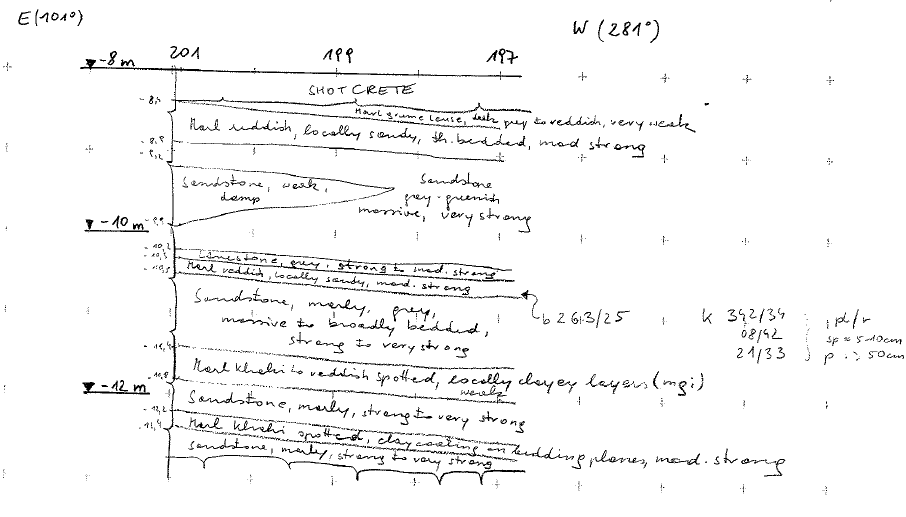 E (101°)
W (281°)
-8 m
201
199
197
SHOTCRETE
Marl grume lense, dark grey to reddish, very weak
Marl reddish, locally sandy, th. bedded, mod strong
-8,9
-9,2
Sandstone, weak,
damp
Sandstone
grey-greenish
massive, very strong
-10 m
-9,9
-10,2
Limestone, grey, strong to mod. strong
Marl reddish, locally sandy, mod. strong
Sandstone, marly, grey,
massive to broadly bedded,
strong to very strong
b 263/25
K 342/34
08/42
21/33
pl/r
sp = 5-10cm
p > 50cm
-11,4
-11,8
Marl khaki to reddish spotted, locally clayey layers (mgi)
weak
-12 m
Sandstone, marly, strong to very strong
-12,2
-12,4
Marl khaki spotted, claycoating on bedding planes, mod. strong
Sandstone, marly, strong to very strong